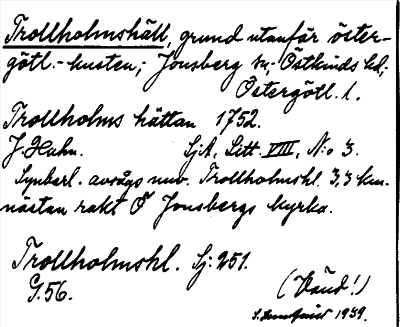 Trollholmshäll, grund utanför öster-
götl.-kusten; Jonsberg sn; Östkinds hd;
Östergötl. l.
Trollholms hättan 1752.
J. Hahn. SjA, Litt. VIII, N:o 3.
Synbarl. avsågs nuv. Trollholmshl. 3,3 km.
nästan rakt Ö Jonsbergs kyrka.
Trollholmshl. Sj: 251.
G. 56. (Känd!)
1939.